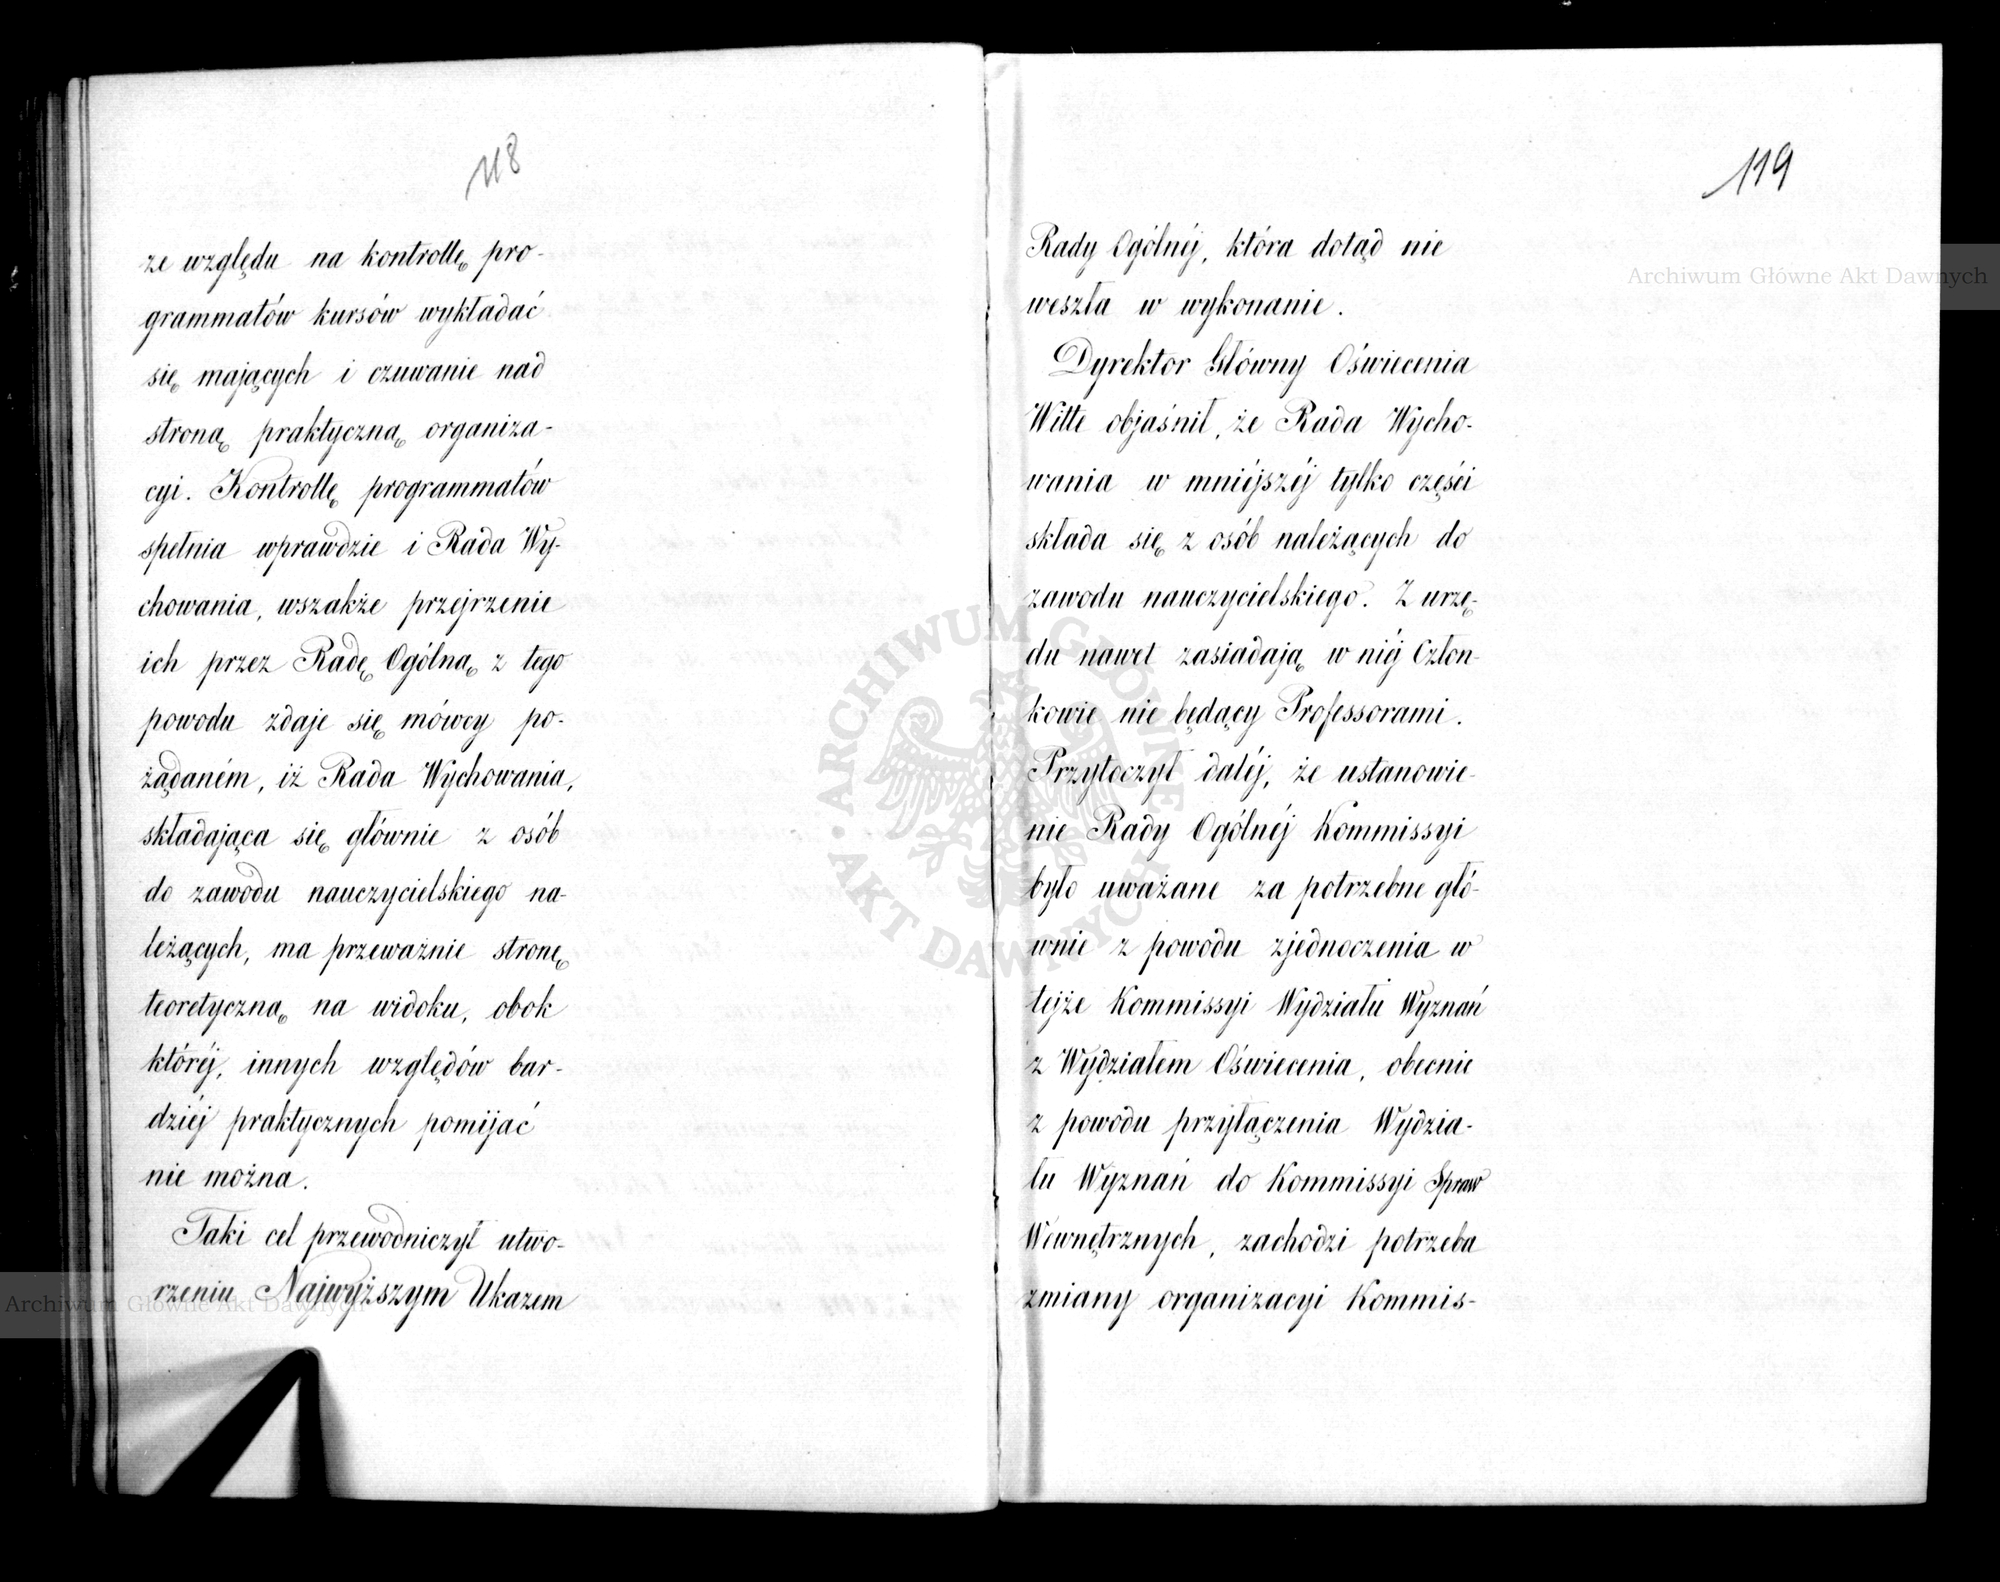 118
ze względu na kontrollę pro-
grammatów kursów wykładać
się mających i czuwanie nad
stroną praktyczną organiza-
cyi. Kontrollę programmatów
spełnia wprawdzie i Rada Wy-
chowania, wszakże przejrzenie
ich przez Radę Ogólną z tego
powodu zdaje się mówcy po-
żądaném, iż Rada Wychowania,
składająca się głównie z osób
do zawodu nauczycielskiego na-
leżących, ma przeważnie stronę
teoretyczną na widoku, obok
któréj, innych względów bar-
dziéj praktycznych pomijać
nie można.
Taki cel przewodniczył utwo-
rzeniu Najwyższym Ukazem
119
Rady Ogólnéj, która dotąd nie
weszła w wykonanie.
Dyrektor Główny Oświecenia
Witte objaśnił, że Rada Wycho-
wania w mniéjszéj tylko części
składa się z osób należących do
zawodu nauczycielskiego. Z urzę-
du nawet zasiadają w niéj Człon-
kowie nie będący Professorami.
Przytoczył daléj, że ustanowie-
nie Rady Ogólnéj Kommissyi
było uważane za potrzebne głó-
wnie z powodu zjednoczenia w
tejże Kommissyi Wydziału Wyznań
z Wydziałem Oświecenia, obecnie
z powodu przyłączenia Wydzia-
łu Wyznań do Kommissyi Spraw
Wewnętrznych, zachodzi potrzeba
zmiany organizacyi Kommis-
Archiwum Główne Akt Dawnych
Archiwum Główne Akt Dawnych
ARCHIWUM GŁÓWNE AKT DAWNYCH